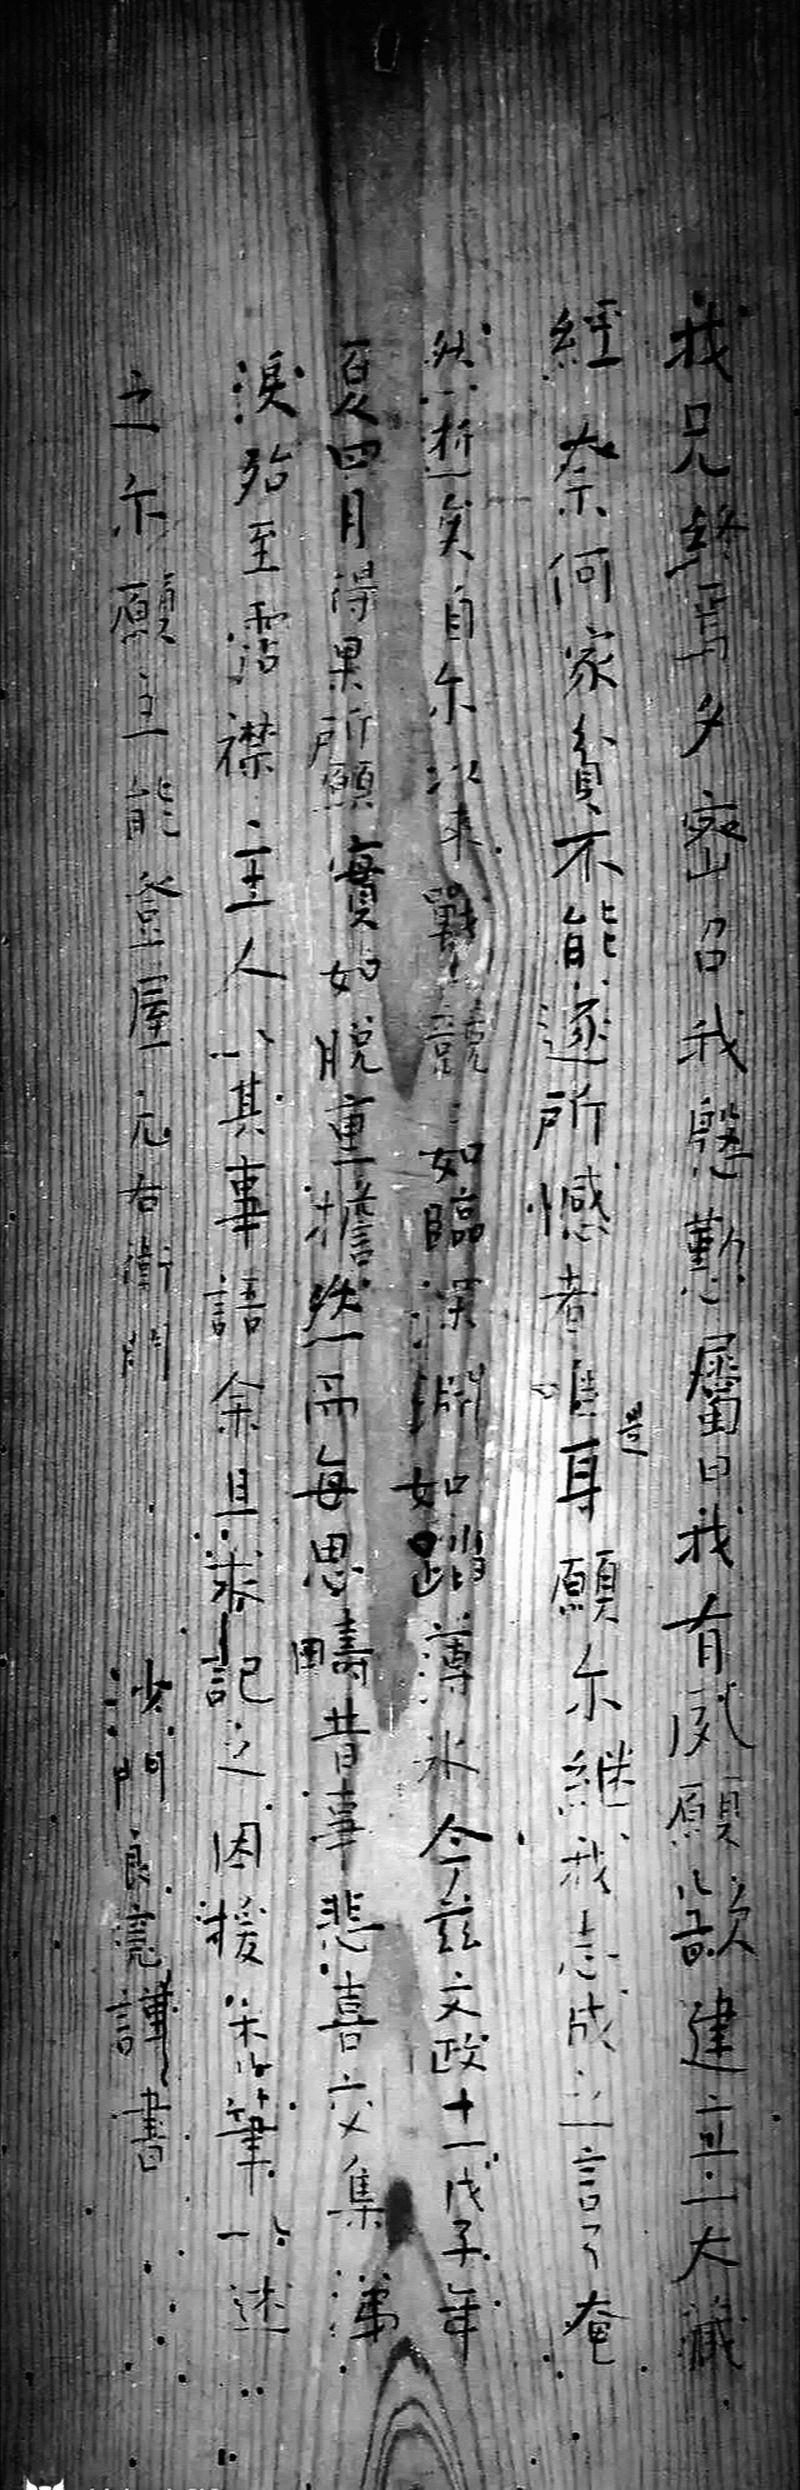 我兄終焉夕密召我慇懃屬曰我有夙願欲建立一大藏
經奈何家貧不能遂所憾者唯是耳願尓継我志成之言了奄
然逝矣自尓以来戰々兢々如臨深淵如踏薄氷今茲文政十一戊子年
夏四月得果所願實如脱重擔然而每思疇昔事悲喜交集涕
淚殆至霑襟主人以其事語余且求記之因援朱筆以述
之尓願主能登屋元右衛門 沙門良寛謹書